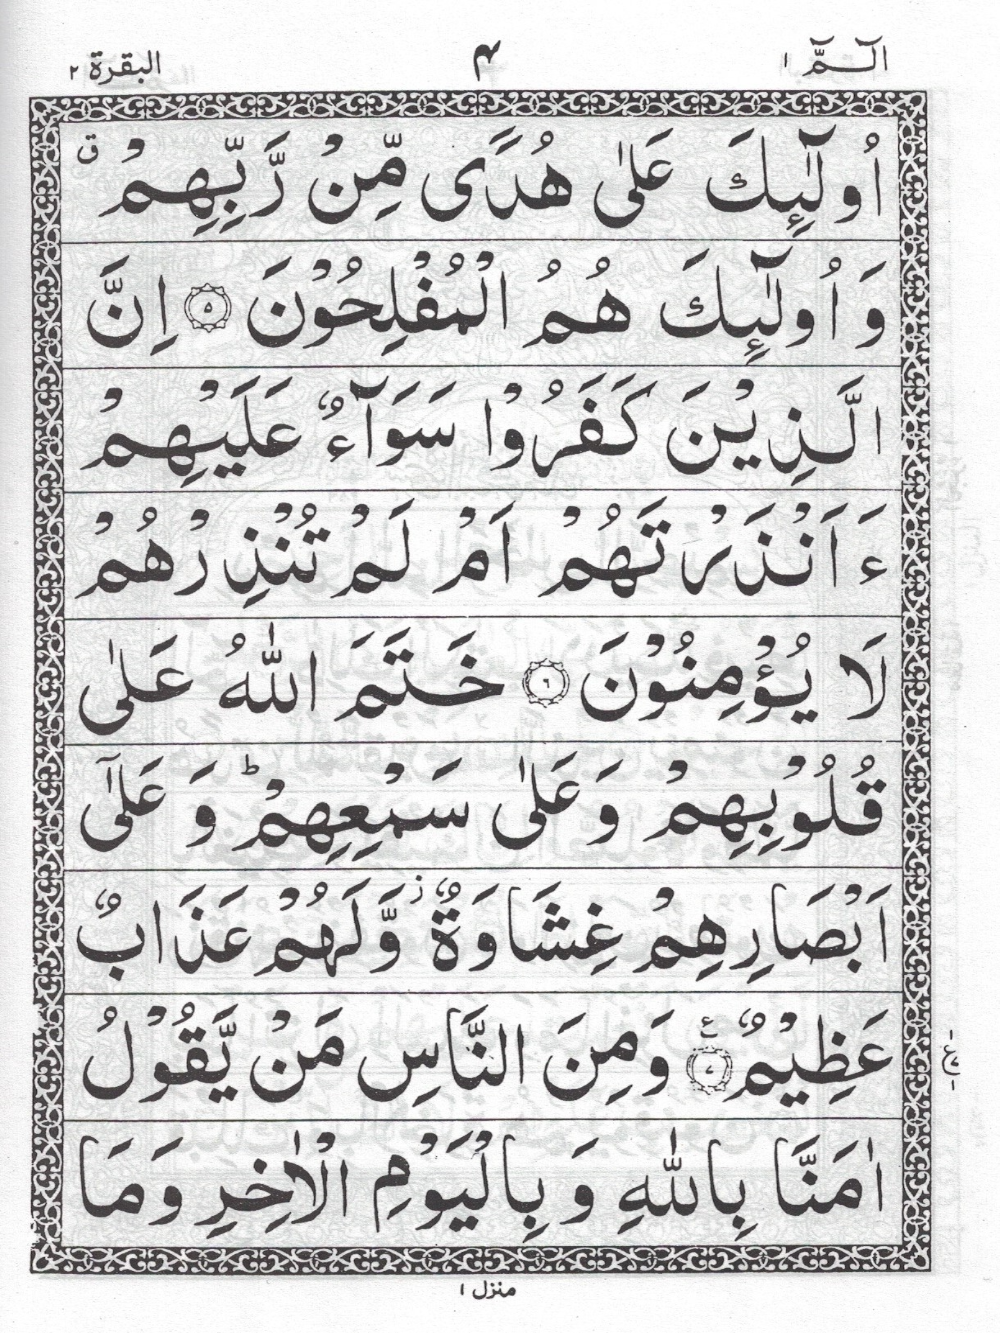 الٓـمّٓ ۱
۴
البقرة ۲
اُولٰٓئِكَ عَلٰی هُدًی مِّنْ رَّبِّهِمْ ۗ
وَ اُولٰٓئِكَ هُمُ الْمُفْلِحُوْنَ ۵ اِنَّ
الَّذِیْنَ كَفَرُوْا سَوَآءٌ عَلَیْهِمْ
ءَاَنْذَرْتَهُمْ اَمْ لَمْ تُنْذِرْهُمْ
لَا یُؤْمِنُوْنَ ۶ خَتَمَ اللّٰهُ عَلٰی
قُلُوْبِهِمْ وَعَلٰی سَمْعِهِمْ ؕ وَ عَلٰۤی
اَبْصَارِهِمْ غِشَاوَةٌ ز وَّلَهُمْ عَذَابٌ
عَظِیْمٌ ۷ ع وَمِنَ النَّاسِ مَنْ یَّقُوْلُ
اٰمَنَّا بِاللّٰهِ وَ بِالْیَوْمِ الْاٰخِرِ وَمَا
منزل ۱